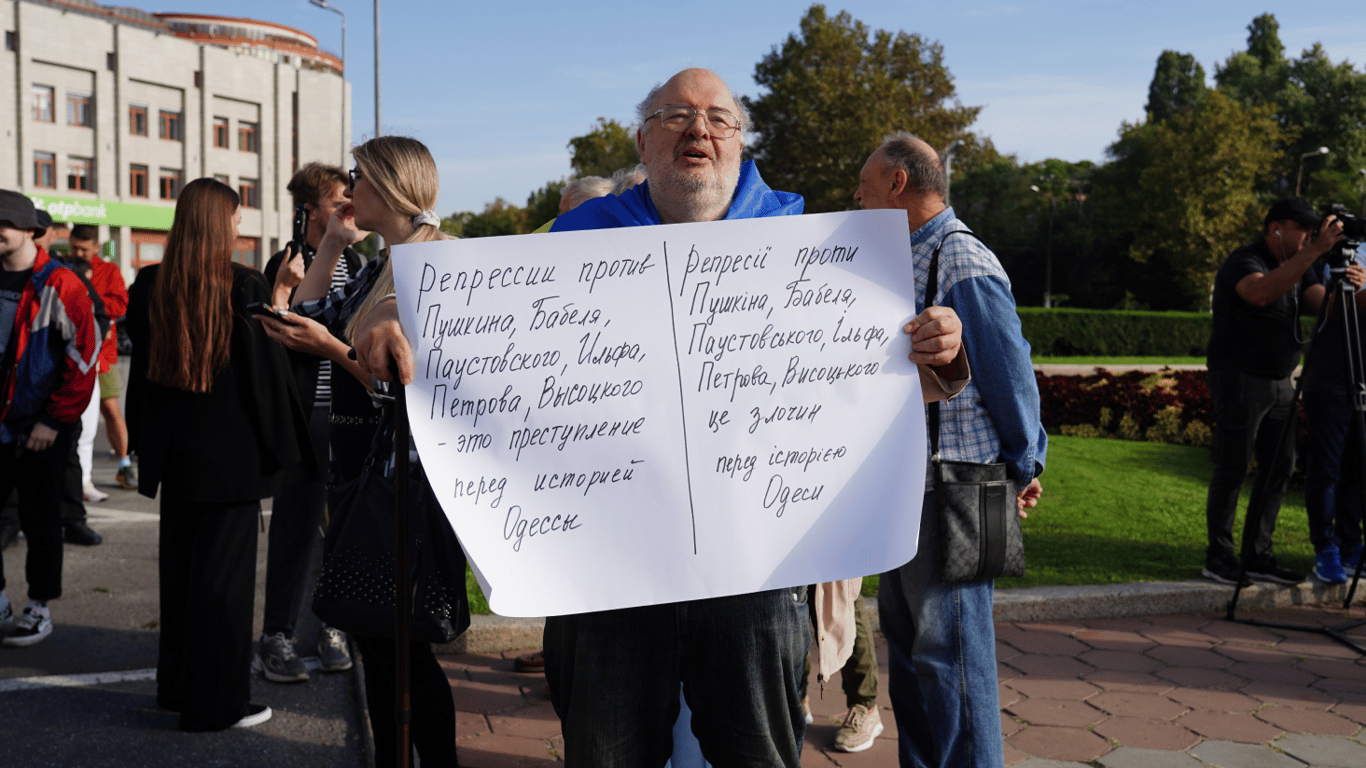 otpbank
Репрессии против
Пушкина, Бабеля,
Паустовского, Ильфа,
Петрова, Высоцкого
- это преступление
перед историей
Одессы
Репресії проти
Пушкіна, Бабеля,
Паустовського, Ільфа,
Петрова, Висоцького
це злочин
перед історією
Одеси